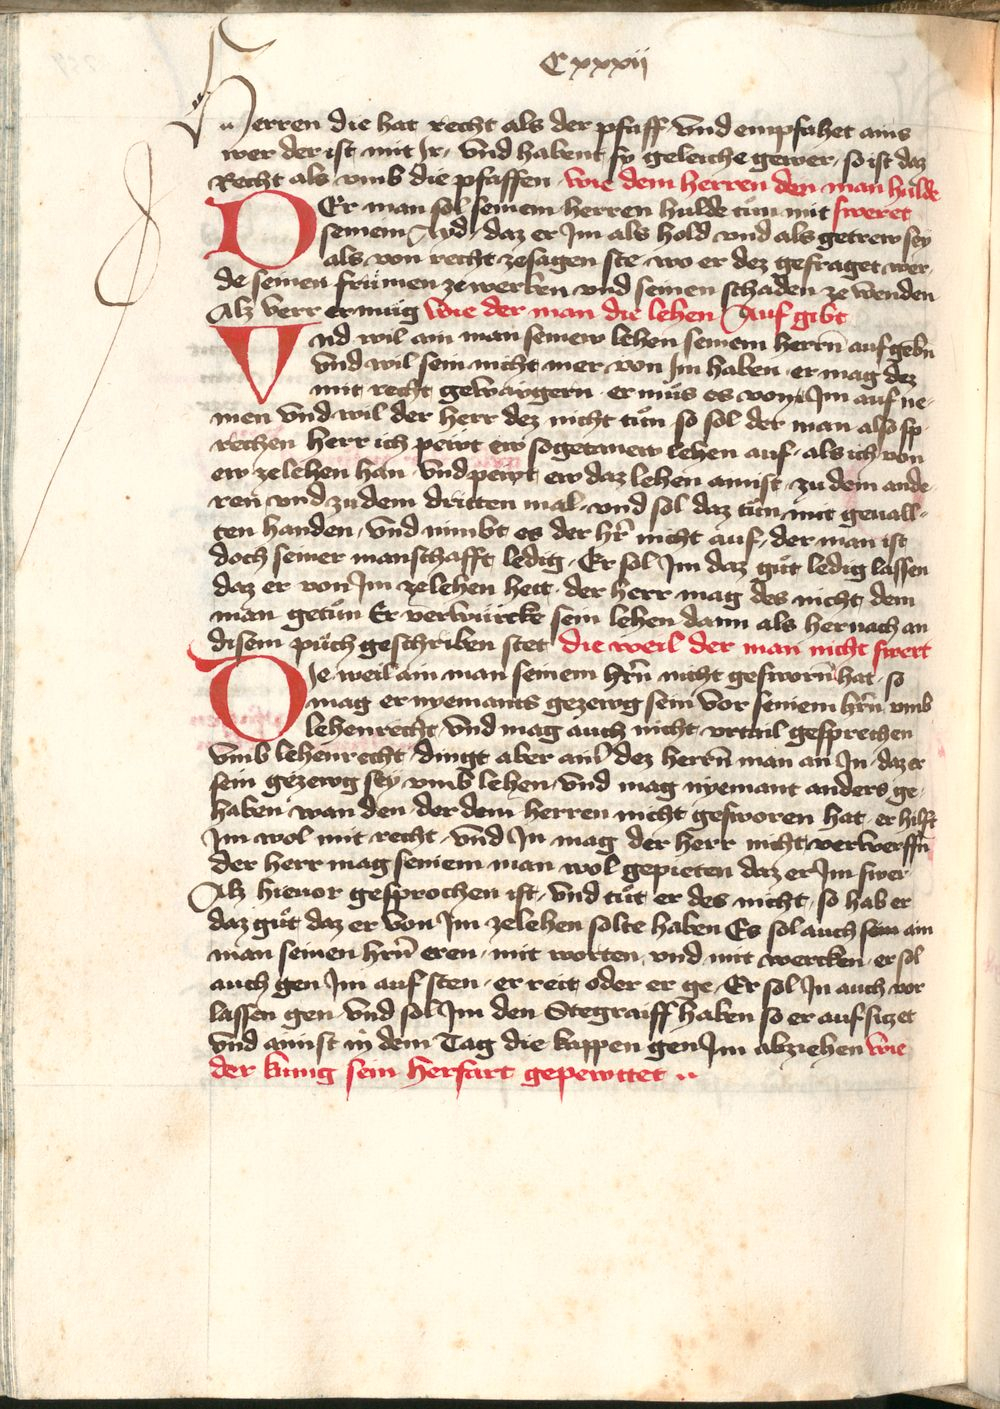 Cxxxii
Herren die hat recht als der pfaff · vnd empfahet ains
wer der ist mit Ir · vnd habent sy geleiche gewer · so ist daz
Recht als vmb die pfaffen · wie dem herren den man hulde
DEr man sol seinem herren hulde tůn mit sweret
seinem Ayd · daz er Im als hold vnd als getrew sey
als von recht zesagen ste · wo er dez gefraget wer
de seinen frümen ze werben vnd seinen schaden ze wenden
Alz verr er müg wie der man die lehen Auf gibt
Vnd wil ain man seinew lehen seinem herrn̄ auf gebn
vnd wil sein nicht mer von Im haben · er mag dez
mit recht gewaygern · er můs es von Im auf ne¬
men vnd wil der herr dez nicht tůn so sol der man also sp¬
rechen herr ich pewt ew sogetanew lehen auf · als ich von
ew zelehen han · vnd pewt ew daz lehen ainist · zu dem ande¬
ren vnd zu dem dritten mal · vnd sol daz tůn mit geuall¬
ten handen · vnd nimbt es der hr̄ nicht auf · der man ist
doch seiner manschafft ledig · Er sol Im daz gůt ledig lassen
daz er von Im zelehen hett · der herr mag des nicht dem
man getůn Er verwurcke sein lehen dann als hernach an
disem půch geschriben stet die weil der man nicht swert
DIe weil ain man seinem hrn̄ nicht gesworn̄ hat · so
mag er nyemants gezewg sein vor seinem hrn̄ vmb
lehenrecht · vnd mag auch nicht vrtail gesprechen
vmb lehenrecht · dingt aber ainˀ dez herrn̄ man an In · daz er
sein gezewg sey vmb lehen · vnd mag nyemant anders ge¬
haben wan den · der dem herren nicht gesworen hat · er hilft
Im wol mit recht · vnd In mag der herr nicht verwerffn̄
der herr mag seinem man wol gepieten daz er Im swer
Alz hieuor gesprochen ist · vnd tůt er des nicht · so hab er
daz gůt daz er von Im zelehen solte haben Es sol auch sein ain
man seinen hrn̄ eren · mit worten vnd mit wercken · er sol
auch gen Im auf sten · er reit oder er ge · Er sol In auch vor
lassen gen · vnd sol Im den Stegraiff haben so er auf sitzet
vnd ainist in dem Tag die kappen gen Im abziehen wie
der kunig sein herfart gepewttet ··